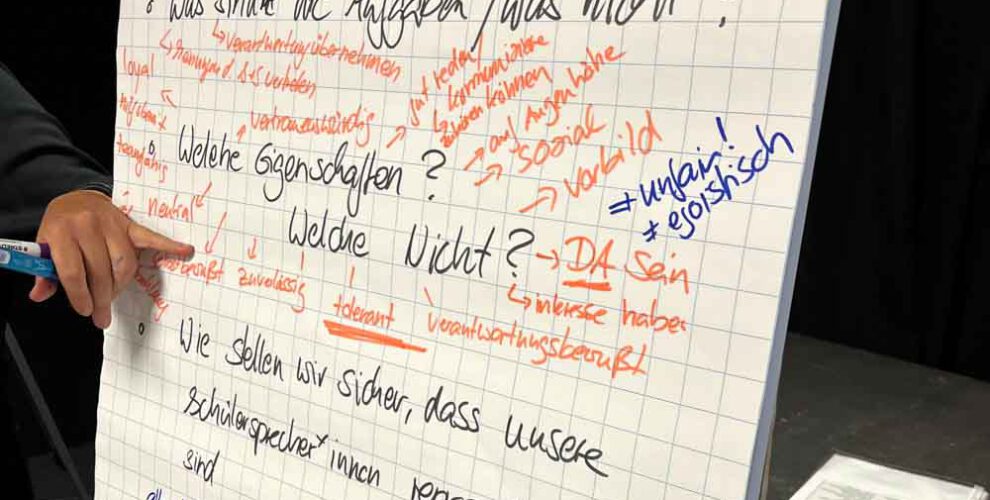 Was sind die Aufgaben / was nicht?
↳ Verantwortung übernehmen
loyal
Vertrauenswürdig
gut reden
↳ kommunizieren
zuhören können
auf Augenhöhe
sozial
Vorbild
≠ unfair!
≠ egoistisch
teamfähig
Welche Eigenschaften?
neutral
Welche Nicht?
→ DA sein
↳ interesse haben
zuverlässig
tolerant
verantwortungsbewußt
Wie stellen wir sicher, dass unsere
Schülersprecher*innen
sind